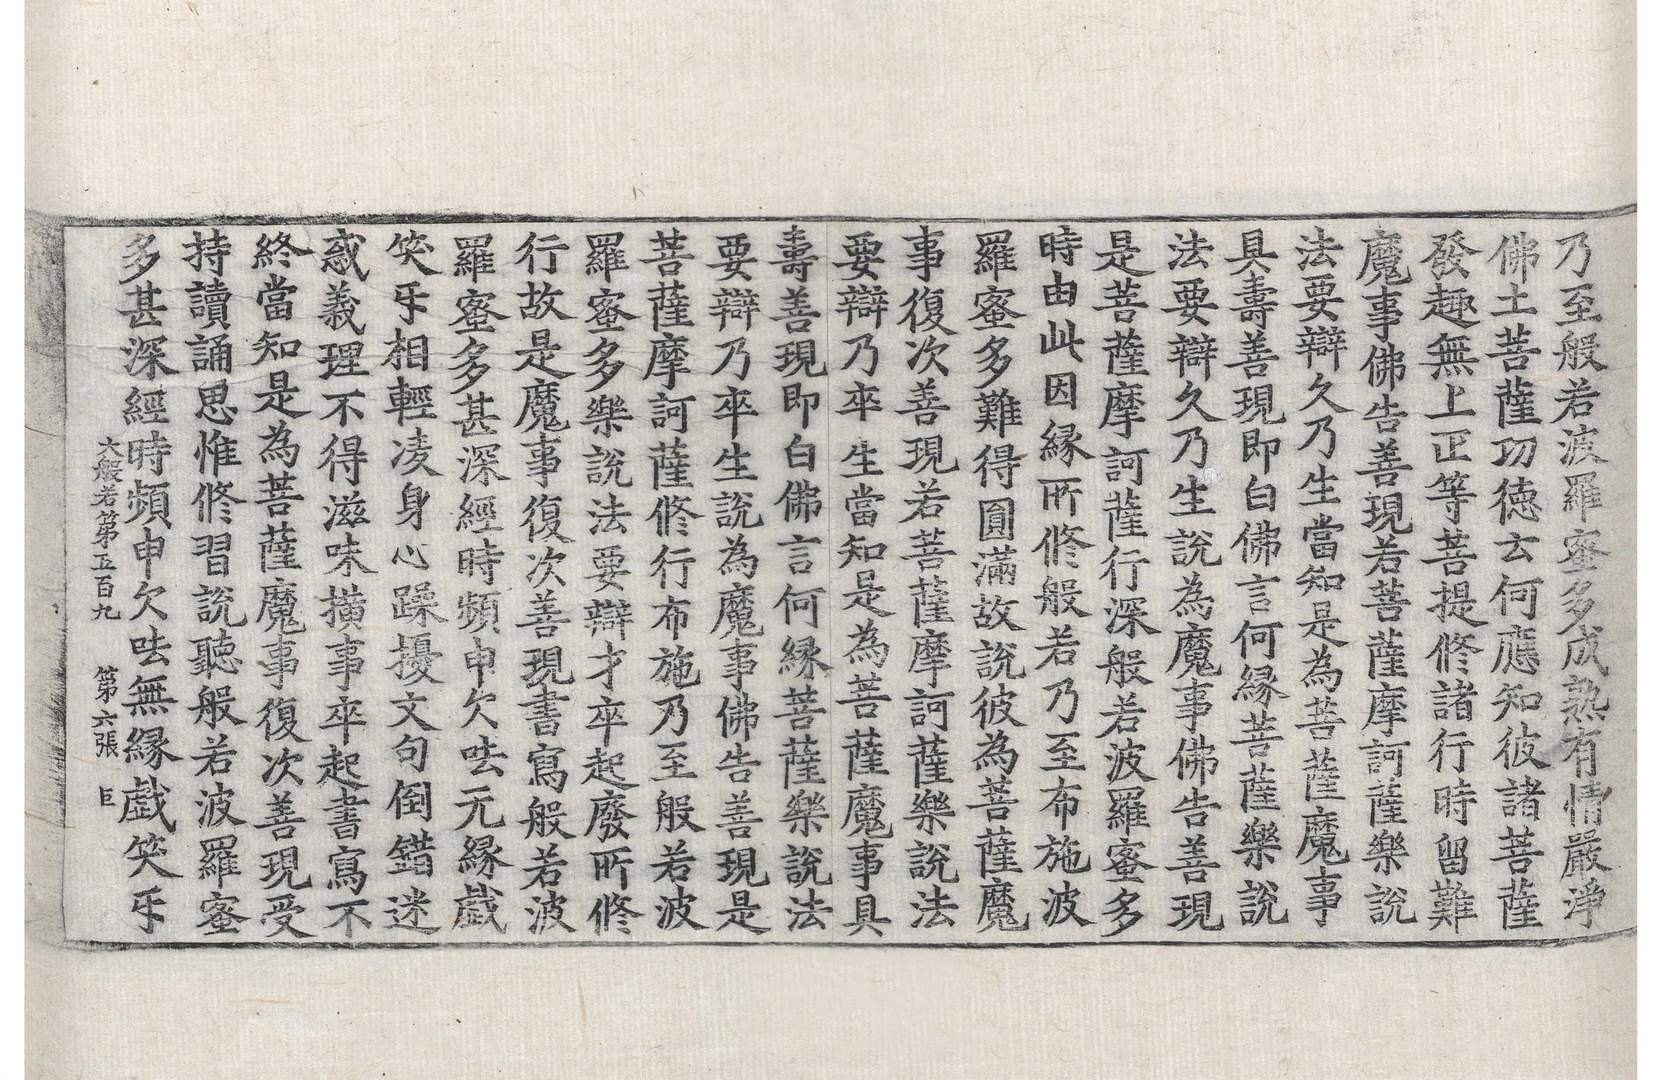 乃至般若波羅蜜多成熟有情嚴淨
佛土菩薩功德云何應知彼諸菩薩
發趣無上正等菩提修諸行時留難
魔事佛告善現若菩薩摩訶薩樂說
法要辯久乃生當知是為菩薩魔事
具壽善現即白佛言何緣菩薩樂說
法要辯久乃生說為魔事佛告善現
是菩薩摩訶薩行深般若波羅蜜多
時由此因緣所修般若乃至布施波
羅蜜多難得圓滿故說彼為菩薩魔
事復次善現若菩薩摩訶薩樂說法
要辯乃卒生當知是為菩薩魔事具
壽善現即白佛言何緣菩薩樂說法
要辯乃卒生說為魔事佛告善現是
菩薩摩訶薩修行布施乃至般若波
羅蜜多樂說法要辯才卒起廢所修
行故是魔事復次善現書寫般若波
羅蜜多甚深經時頻申欠呿无緣戲
笑㸦相輕凌身心躁擾文句倒錯迷
惑義理不得滋味撗事卒起書寫不
終當知是為菩薩魔事復次善現受
持讀誦思惟修習說聽般若波羅蜜
多甚深經時頻申欠呿無緣戲笑㸦
大般若第五百九 第六張 巨